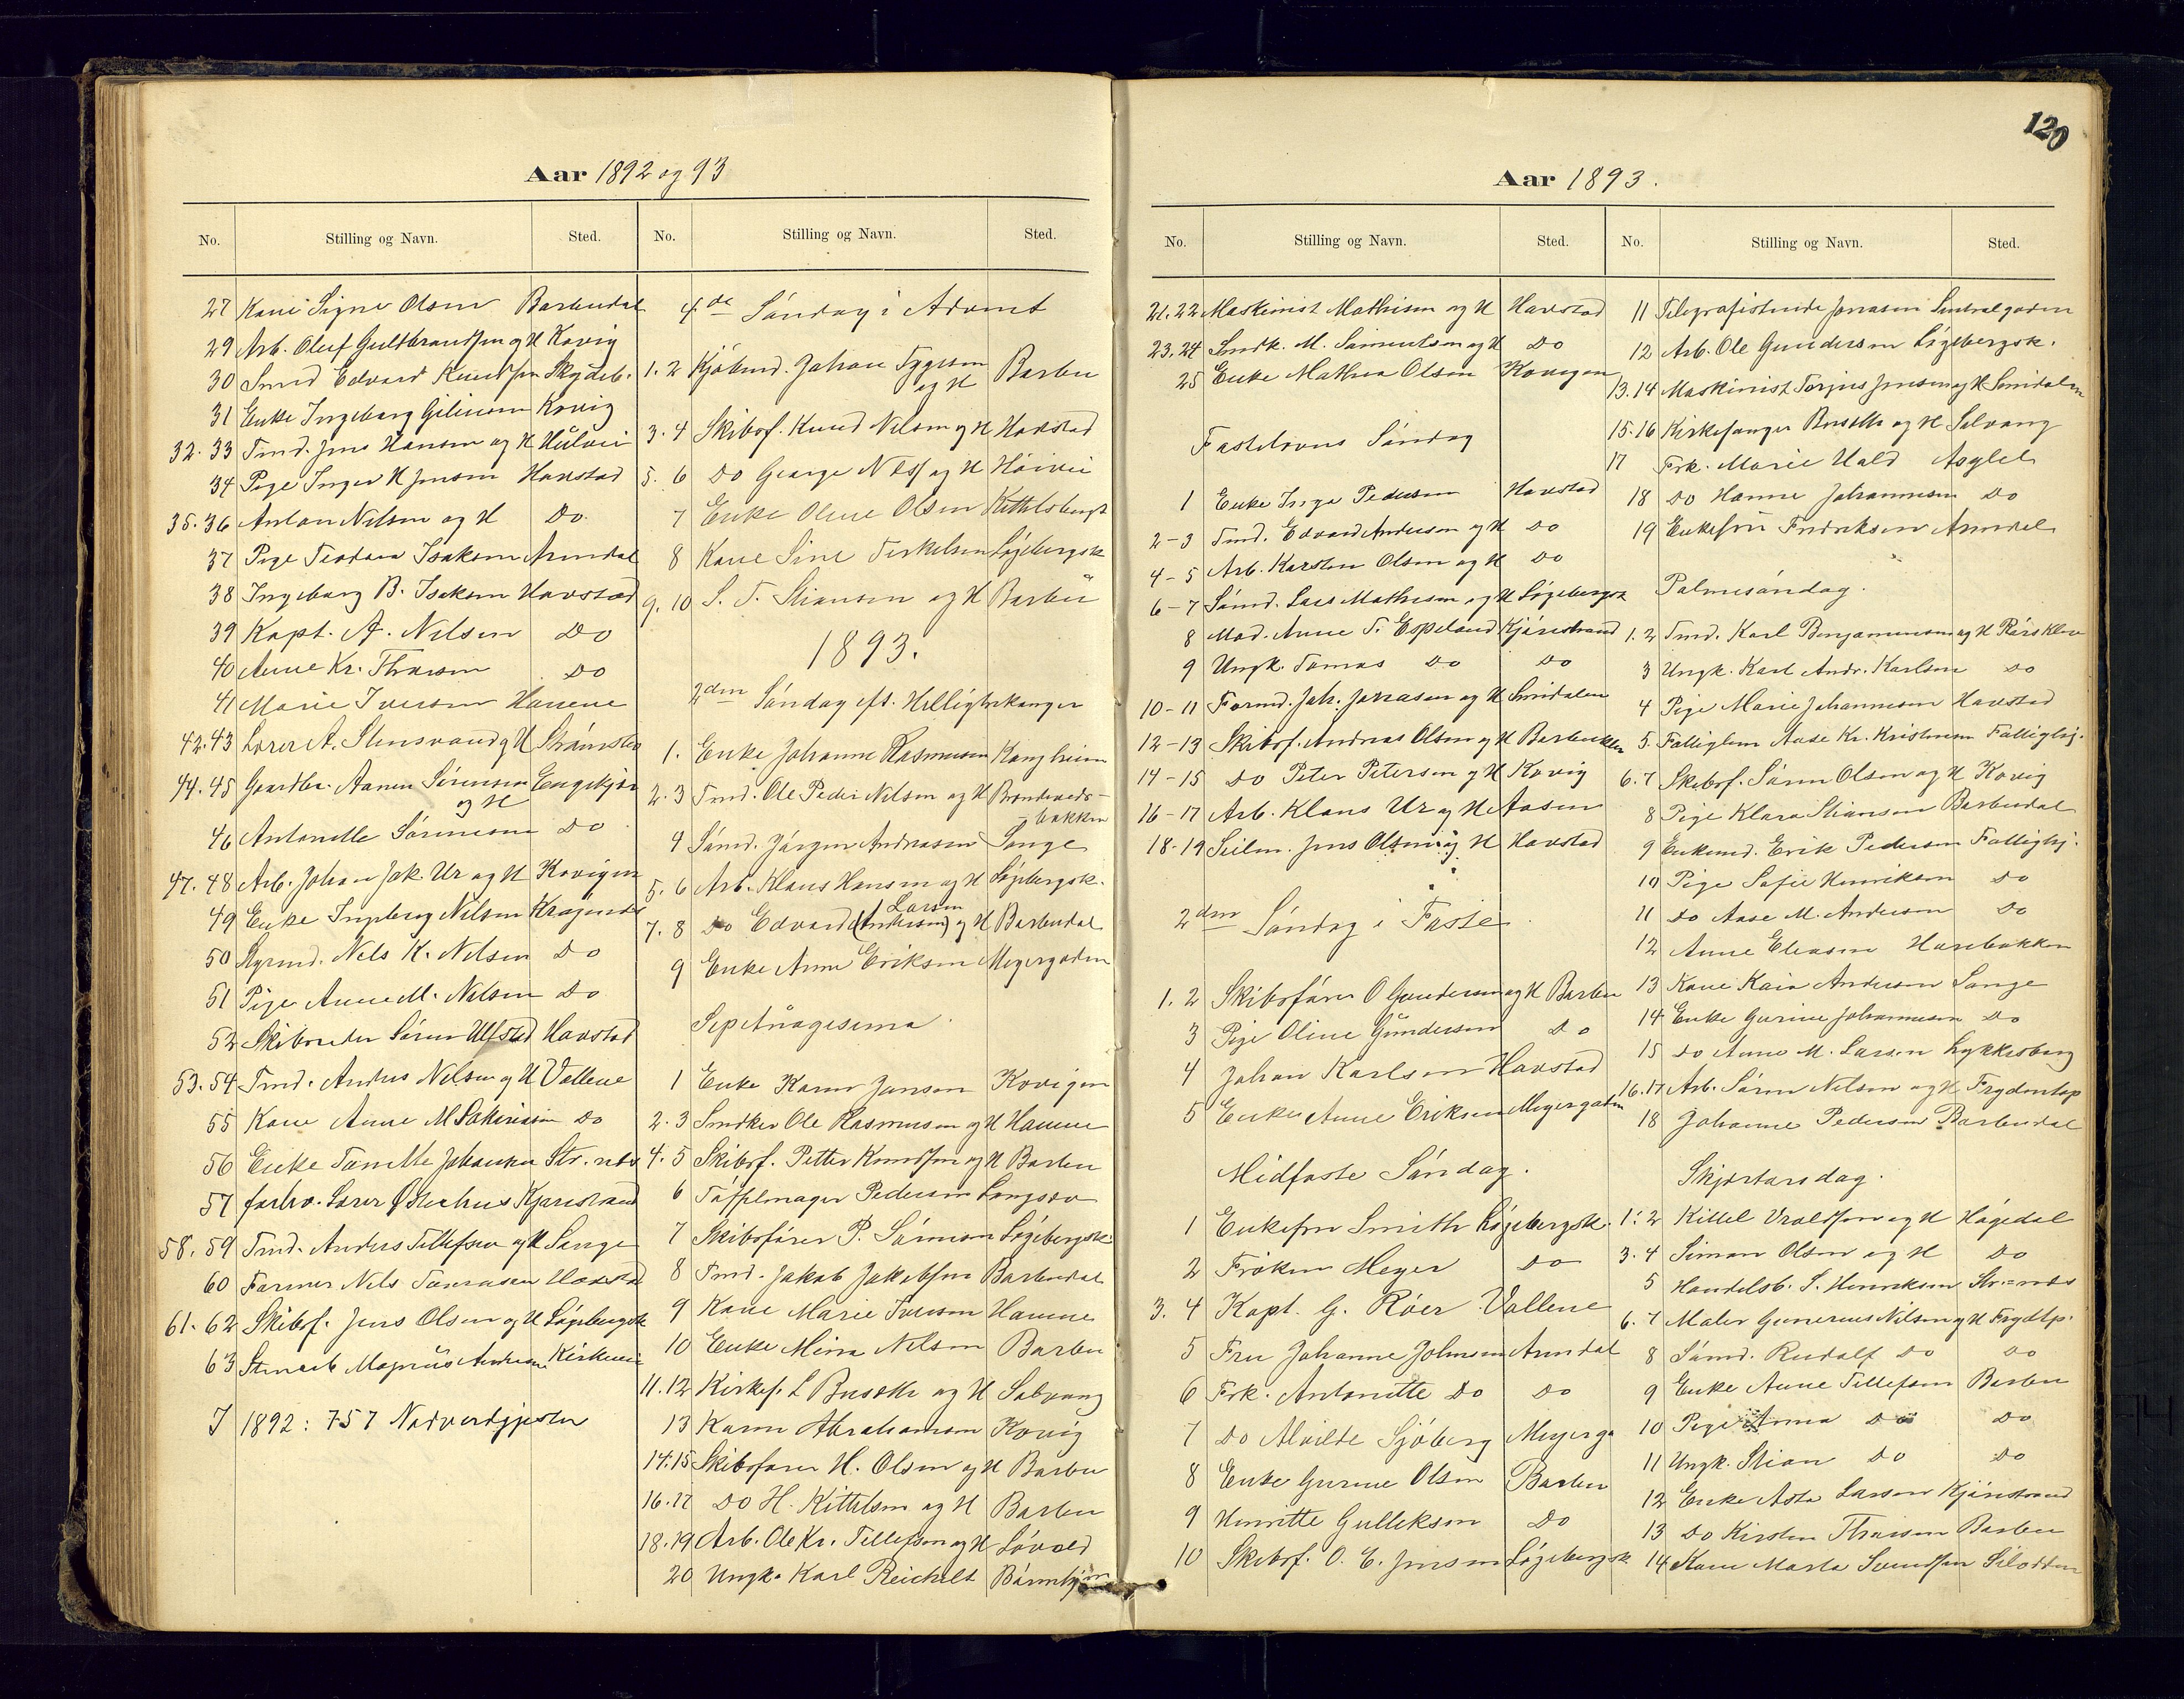 Aar 1892 og 93
No. Stilling og Navn. Sted.
27 Kone Signe Olsen Barbudal
29 Arb. Oluf Guldbrandsen og H Kovig
30 Smed Edvard Knudsen Skydeb.
31 Enke Ingeborg Kovig
32. 33 Tmd. Jens Hansen og H
34 Pige Inger H Jensen Havstad
35. 36 Anton Nilsen og H Do
37 Pige Teodora Isaksen Arendal
38 Ingeborg B. Isaksen Havstad
39 Kapt. A. Nilsen Do
40 Anne Kr. Do
41 Marie Iversen Havene
42. 43 Lærer A. Stensvand og H
44. 45 Gaardbr. Aanen Sörensen Engekjær
og H
46 Antonette Sörensen Do
47. 48 Arb. Johan Jak. Ur og H Kovigen
49 Enke Ingeborg Nilsen
50 Styrmd. Nels K. Nilsen Do
51 Pige Anne M. Nilsen Do
52 Skibsreder Sören Ulfstad Havstad
53. 54 Tmd. Andres Nilsen og H Vollene
55 Kone Anne M Do
56 Enke Tomette Johansen Str. næs
57 forhv. Lærer Kjærestrand
58. 59 Tmd. Anders Tellefsen og H Songe
60 Former Nils Havstad
61. 62 Skibsf. Jens Olsen og H Lögebergsk
63 Magnus Andersen Kirkevei
I 1892: 757 Nadverdgjester
No. Stilling og Navn. Sted.
4.de Söndag i Advent
1. 2 Kjöbmd. Johan Tygesen
og H Barbu
3. 4 Skibsf. Knud Nilsen og H Havstad
5. 6 Do George og H Höivei
7 Enke Oline Olsen
8 Kone Sine Terkelsen Lögebergsk
9. 10 S. T. Stiansen og H Barbu
1893.
2den Söndag eft. Helligtrekonger
1. Enke Johanne Rasmusen Kongsheim
2. 3 Tmd. Ole Peder Nilsen og H
bakken
4 Sömd. Jörgen Andreasen Songe
5. 6 Arb. Klaus Hansen og H Lögebergsk.
Larsen
7. 8 Do Edvard (Andersen) og H Barbudal
9 Enke Anne Eriksen Meyergaden
Septuagesima.
1 Enke Karen Jensen Kovigen
2. 3 Smdker Ole Rasmusen og H Havene
4. 5 Skibsf. Petter Knudsen og H Barbu
6 Töffelmager Pedersen Langsæ
7 Skibsförer P. Sörensen Lögebergsk.
8 Tmd. Jakob Jakobsen Barbudal
9 Kone Marie Iversen Havene
10 Enke Mina Nilsen Barbu
11. 12 Kirkes. L Busæth og H Solvang
13 Karen Abrahamsen Kovig
14. 15 Skibsförer H. Olsen og H Barbu
16. 17 Do H. Kittelsen og H Barbu
18. 19 Arb. Ole Kr. Tellefsen og H Lövold
20 Ungk. Karl Reichelt
120
Aar 1893.
No. Stilling og Navn. Sted.
21. 22 Maskinist Mathisen og H Havstad
23. 24 Smdk. M. Simentsen og H Do
25 Enke Mathea Olsen Kovigen
Fastelavns Söndag
1 Enke Inga Pedersen Havstad
2-3 Tmd. Edvard Andersen og H Do
4-5 Arb. Karsten Olsen og H Do
6-7 Sömd. Lars Mathisen og H Lögebergsk
8 Mad. Anne T. Espeland Kjærestrand
9 Ungk. Tomas Do Do
10-11 Formd. Joh. Jonasen og H Smidalen
12-13 Skibsf. Andreas Olsen og H
14-15 Do Peter Petersen og H Kovig
16-17 Arb. Klaus Ur og H Aasen
18-19 Seilm. Jens Olsen og H Havstad
2den Söndag i Faste
1. 2 Skibsförer O Gundersen og H Barbu
3 Pige Oline Gundersen Do
4 Johan Karlsen Havstad
5 Enke Anne Eriksen Meyergaden
Midfaste Söndag.
1 Enkefru Smith Lögebergsk.
2 Fröken Meyer Do
3. 4 Kapt. G. Röer Vollene
5 Fru Johanne Johnsen Arendal
6 Frk. Antonette Do Do
7 Do Alvilde Sjöberg Meyerga
8 Enke Gurine Olsen Barbu
9 Henriette Gulleksen Do
10 Skibsf. O. E. Jensen Lögebergsk
No. Stilling og Navn. Sted.
11 Telegrafistinde Jonasen Sentralgaden
12 Arb. Ole Gundersen Lögebergsk.
13. 14 Maskinist Torjus Jensen og H Smidalen
15. 16 Kirkesanger Busæth og H Solvang
17 Frk. Marie Hald Asylet
18 Do Hanne Johannesen Do
19 Enkefru Fredriksen Arendal
Palmesöndag.
1. 2 Tmd. Karl Benjaminsen og H
3 Ungk. Karl Andr. Karlsen Do
4 Pige Marie Johannesen Havstad
5. Fattiglem Aase Kr. Kristensen Fattighj.
6. 7 Skibsf. Sören Olsen og H Kovig
8 Pige Klara Stiansen Barbudal
9 Enkemd. Erik Pedersen Fattighj.
10 Pige Sofie Henriksen Do
11 Do Aase M. Andersen Do
12 Anne Eleasen Havebakken
13 Kone Kaia Andersen Songe
14 Enke Gurine Johannesen Do
15 Do Anne M. Larsen Lykkesborg
16. 17 Arb. Sören Nilsen og H Frydentop
18 Johanne Pedersen Barbudal
Skjærtorsdag.
1. 2 Kittel Vraldsen og H Högedal
3. 4 Simon Olsen og H Do
5 Handelsb. S. Henriksen Str.=næs
6. 7 Maler Gunerius Nilsen og H Frydtp.
8 Sömd. Rudolf Do Do
9 Enke Anne Tellefsen Barbu
10 Pige Anna Do Do
11 Ungk. Stian Do Do
12 Enke Asta Larsen Kjærestrand
13 Do Kirsten Barbu
14 Kone Marta Svendsen